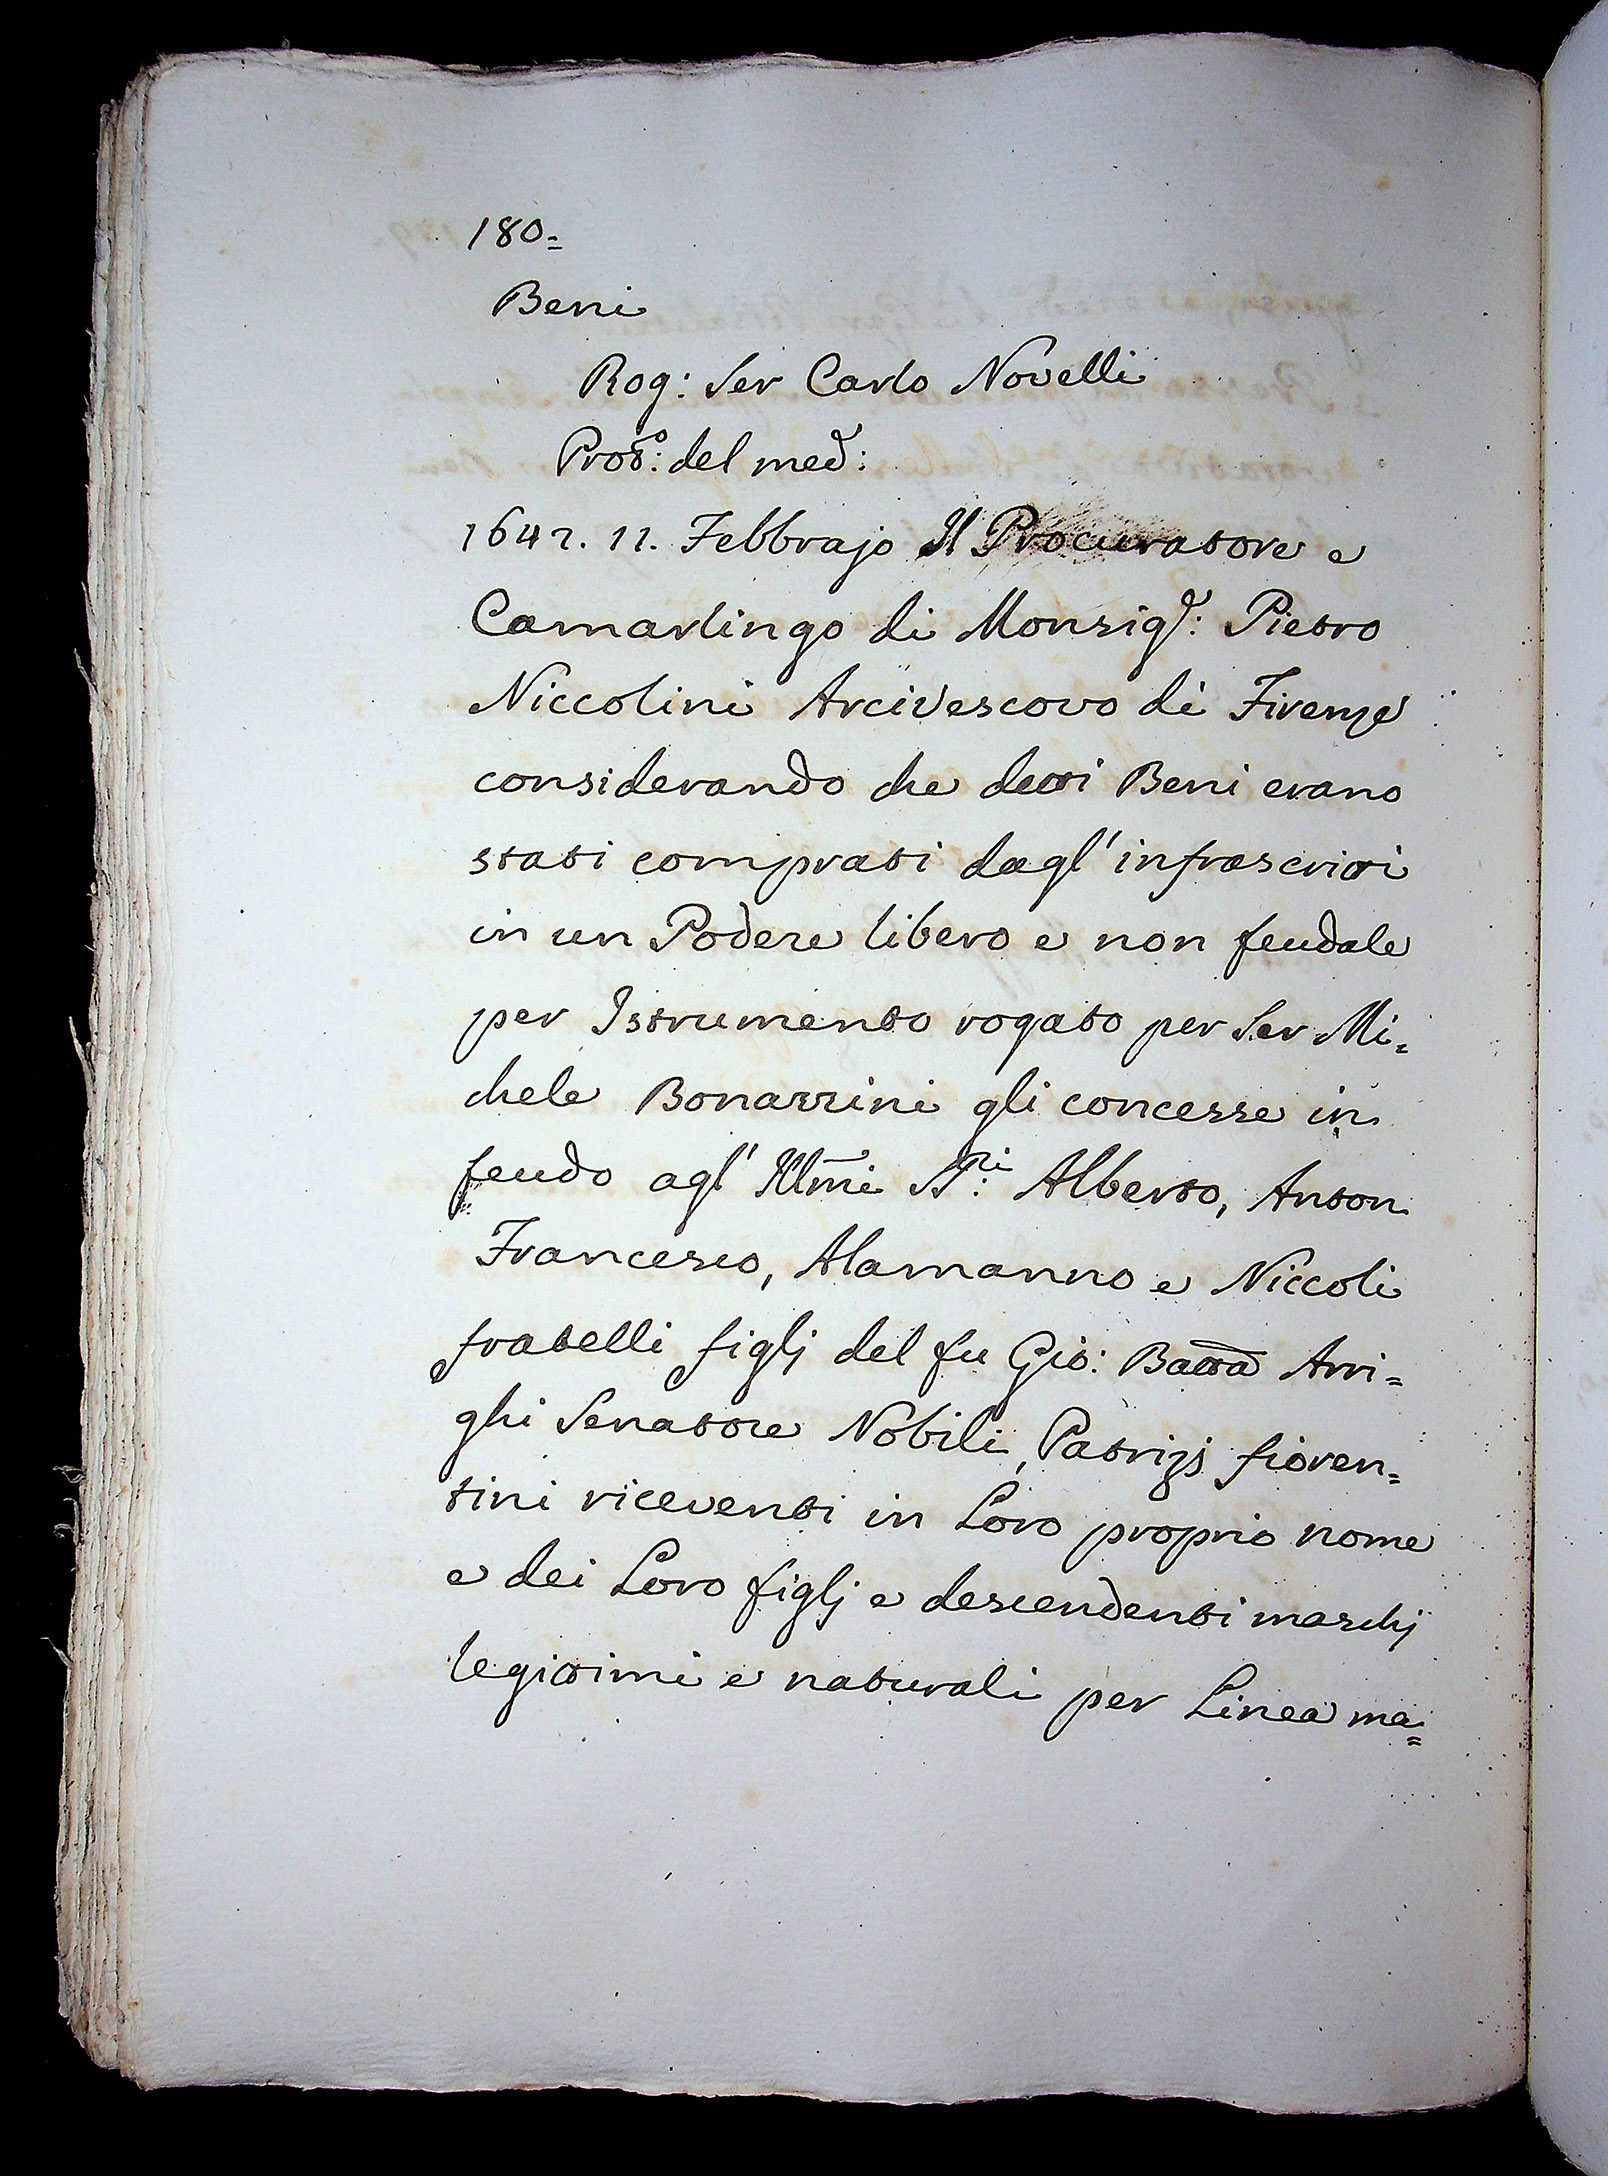 180=
Beni
Rog: Ser Carlo Novelli
Prot.º: del med:
1641. 11. Febbrajo Il Procuratore e
Camarlingo di Monsig.r: Pietro
Niccolini Arcivescovo di Firenze
considerando che detti Beni erano
stati comprati dagl' infrascritti
in un Podere libero e non feudale
per Istrumento rogato per Ser Mi=
chele Bonazzini gli concesse in
feudo agl' Ill͞mi SS.ri: Alberto, Anton
Francesco, Alamanno e Niccoli
fratelli figlj del fu Gio: Batta Arri=
ghi Senatore Nobili, Patrizj fioren=
tini riceventi in Loro proprio nome
e dei Loro figlj e descendenti maschj
legittimi e naturali per Linea ma=